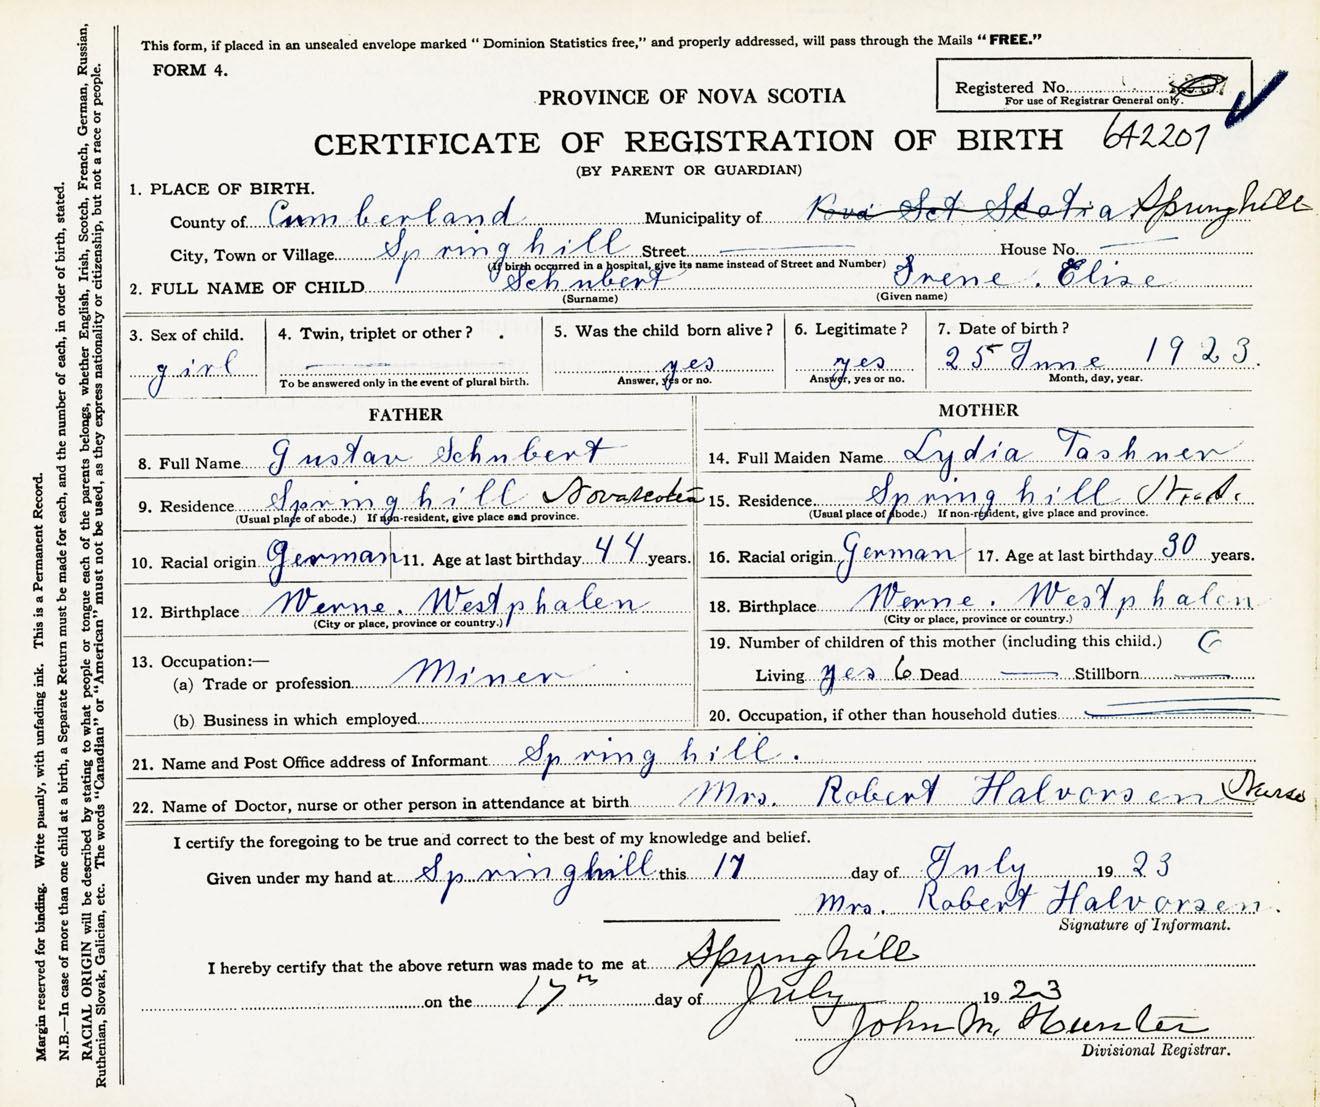 This form, if placed in an unsealed envelope marked “ Dominion Statistics free,” and properly addressed, will pass through the Mails “ FREE.”
FORM 4.
Registered No.
For use of Registrar General only.
PROVINCE OF NOVA SCOTIA
CERTIFICATE OF REGISTRATION OF BIRTH 642207
(BY PARENT OR GUARDIAN)
1. PLACE OF BIRTH.
County of Cumberland Municipality of Scotia Springhill
City, Town or Village Springhill Street House No.
(If birth occurred in a hospital, give its name instead of Street and Number)
2. FULL NAME OF CHILD Schubert Irene . Elise
(Surname) (Given name)
3. Sex of child. 4. Twin, triplet or other ? 5. Was the child born alive ? 6. Legitimate ? 7. Date of birth ?
girl yes yes 25 June 1923.
To be answered only in the event of plural birth. Answer, yes or no. Answer, yes or no. Month, day, year.
FATHER MOTHER
8. Full Name Gustav Schubert 14. Full Maiden Name Lydia Tashner
9. Residence Springhill Nova Scotia 15. Residence Springhill N.S.
(Usual place of abode.) If non-resident, give place and province. (Usual place of abode.) If non-resident, give place and province.
10. Racial origin German 11. Age at last birthday 44 years. 16. Racial origin German 17. Age at last birthday 30 years.
12. Birthplace Werne. Westphalen 18. Birthplace Werne. Westphalen
(City or place, province or country.) (City or place, province or country.)
19. Number of children of this mother (including this child.) 6
13. Occupation:—
(a) Trade or profession Miner Living yes 6 Dead Stillborn
(b) Business in which employed 20. Occupation, if other than household duties
21. Name and Post Office address of Informant Springhill.
22. Name of Doctor, nurse or other person in attendance at birth Mrs. Robert Halvorsen Nurse
I certify the foregoing to be true and correct to the best of my knowledge and belief.
Given under my hand at Springhill this 17 day of July 19 23
Mrs. Robert Halvorsen.
Signature of Informant.
I hereby certify that the above return was made to me at Springhill
on the 17th day of July 19 23
John M. Hunter
Divisional Registrar.
Margin reserved for binding. Write plainly, with unfading ink. This is a Permanent Record.
N.B.—In case of more than one child at a birth, a Separate Return must be made for each, and the number of each, in order of birth, stated.
RACIAL ORIGIN will be described by stating to what people or tongue each of the parents belongs, whether English, Irish, Scotch, French, German, Russian,
Ruthenian, Slovak, Galician, etc. The words “Canadian” or “American” must not be used, as they express nationality or citizenship, but not a race or people.